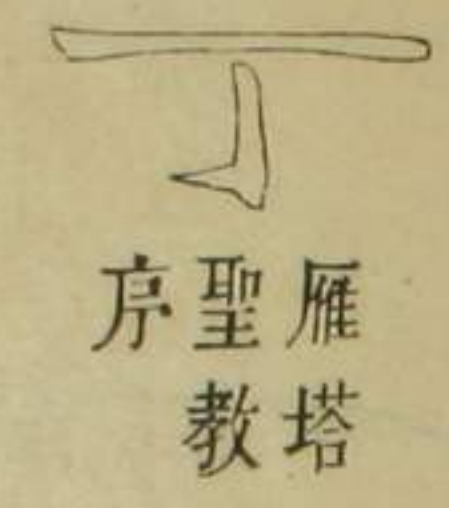 丁
雁塔
聖教
序